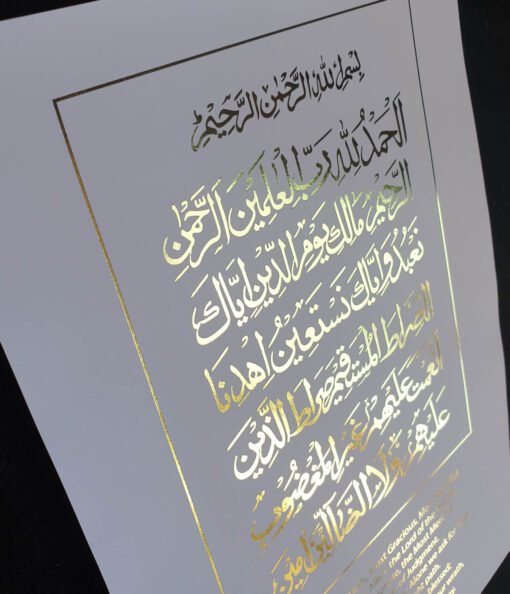 بسم الله الرحمن الرحيم
الحمد لله رب العلمين الرحمن
الرحيم مالك يوم الدين اياك
نعبد واياك نستعين اهدنا
الصراط المستقيم صراط الذين
انعمت عليهم غير المغضوب
عليهم ولا الضالين امين
Most Gracious, Mo
the Lord of the
the Most Me
of Judgment.
Alone we ask fo
ht path.
blessed;
ur wrath.